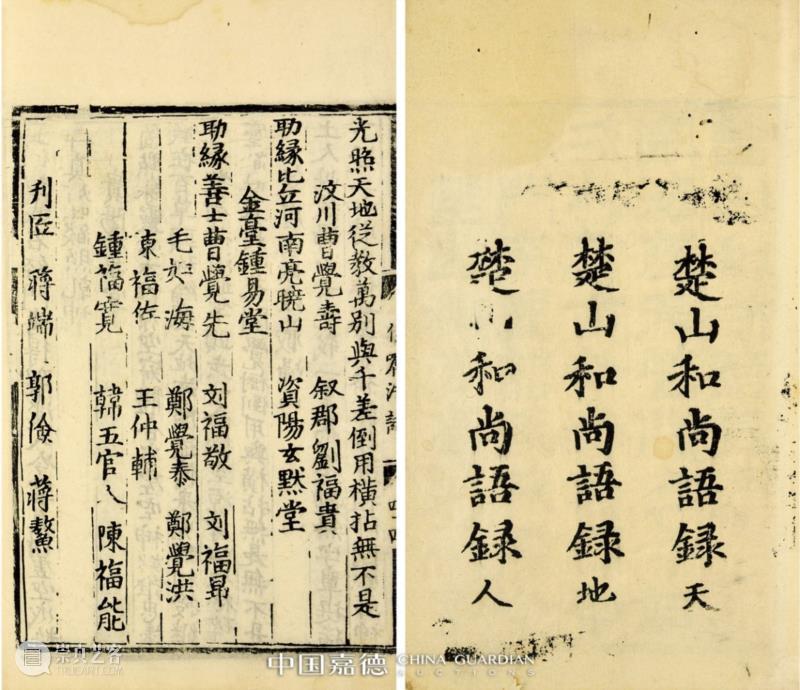 楚山和尚語録天
楚山和尚語録地
楚山和尚語録人
光照天地從教萬別與千差倒用橫拈無不是
汶川曹覺壽 叙郡劉福貴
助緣比丘河南亮曉山 資陽玄默堂
金臺鍾易堂
助緣善士曹覺先 刘福敬 刘福昂
毛如海 鄭覺泰 鄭覺洪
陳福佐 王仲輔
鍾福寬 韓五官人 陳福能
刊匠 蔣端 郭儉 蔣鰲
崇真艺客
TRUEART.COM
中国嘉德 CHINA GUARDIAN
AUCTIONS